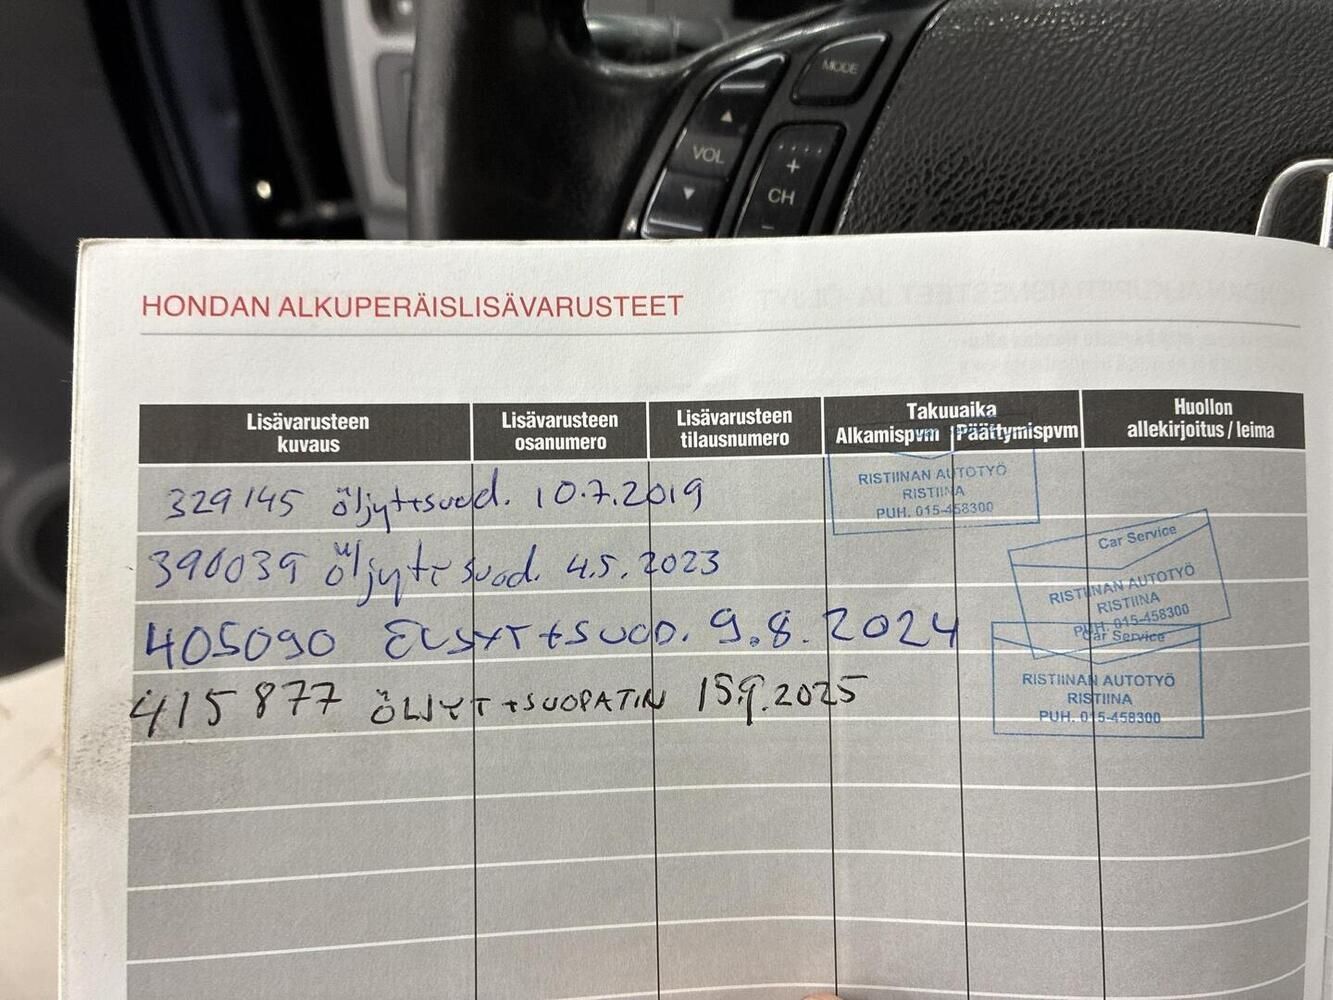 MODE
VOL
+
CH
-
HONDAN ALKUPERÄISLISÄVARUSTEET
Lisävarusteen kuvaus
Lisävarusteen osanumero
Lisävarusteen tilausnumero
Takuuaika
Alkamispvm
Päättymispvm
Huollon allekirjoitus / leima
329145 öljyt+suod. 10.7.2019
RISTIINAN AUTOTYÖ
RISTIINA
PUH. 015-458300
390039 öljyt+suod. 4.5.2023
Car Service
RISTIINAN AUTOTYÖ
RISTIINA
PUH. 015-458300
405090 ÖLJYT+SUOD. 9.8.2024
Car Service
RISTIINAN AUTOTYÖ
RISTIINA
PUH. 015-458300
415877 ÖLJYT+SUODATIN 15.9.2025